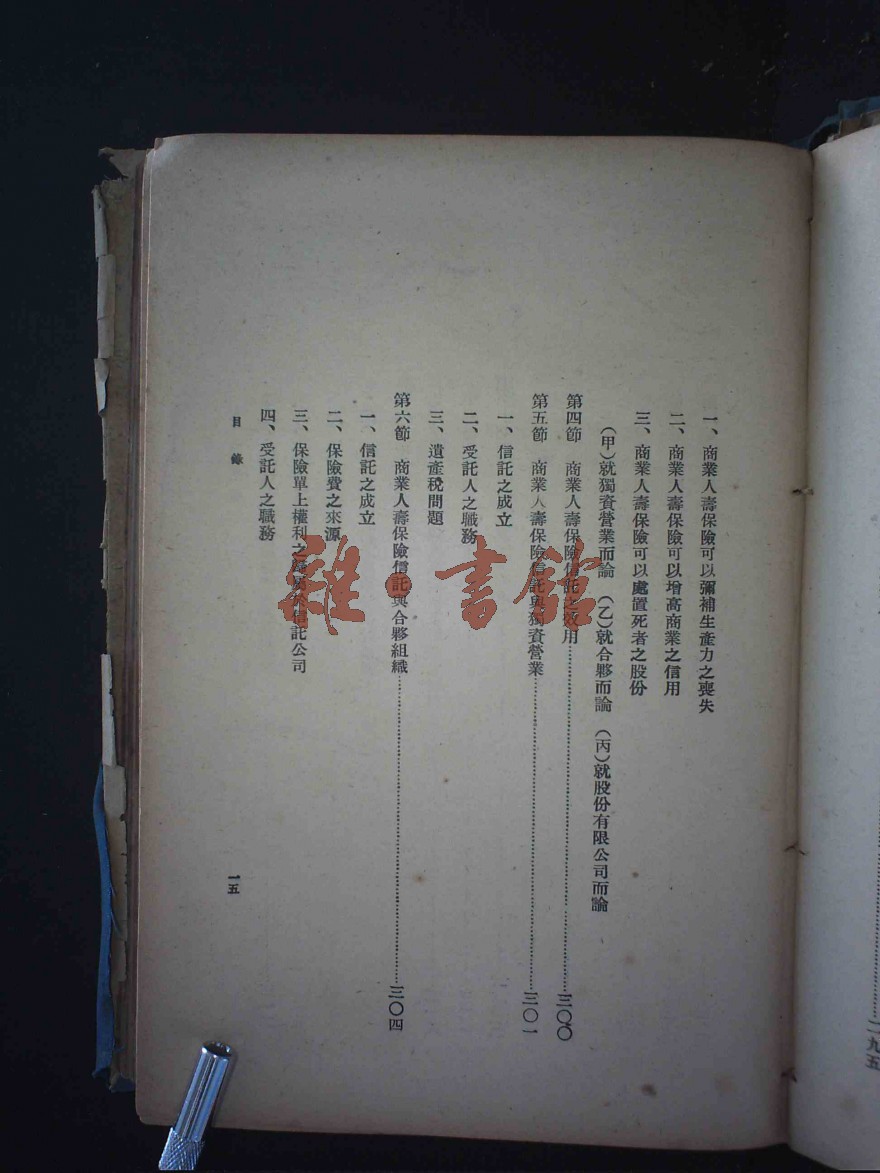 一、商業人壽保險可以彌補生產力之喪失
二、商業人壽保險可以增高商業之信用
三、商業人壽保險可以處置死者之股份
(甲)就獨資營業而論 (乙)就合夥而論 (丙)就股份有限公司而論
第四節 商業人壽保險信託之效用……三〇〇
第五節 商業人壽保險信託與獨資營業……三〇一
一、信託之成立
二、受託人之職務
三、遺產稅問題
第六節 商業人壽保險信託與合夥組織……三〇四
一、信託之成立
二、保險費之來源
三、保險單上權利之歸屬於信託公司
四、受託人之職務
目錄
一五
二九五
雜·書館